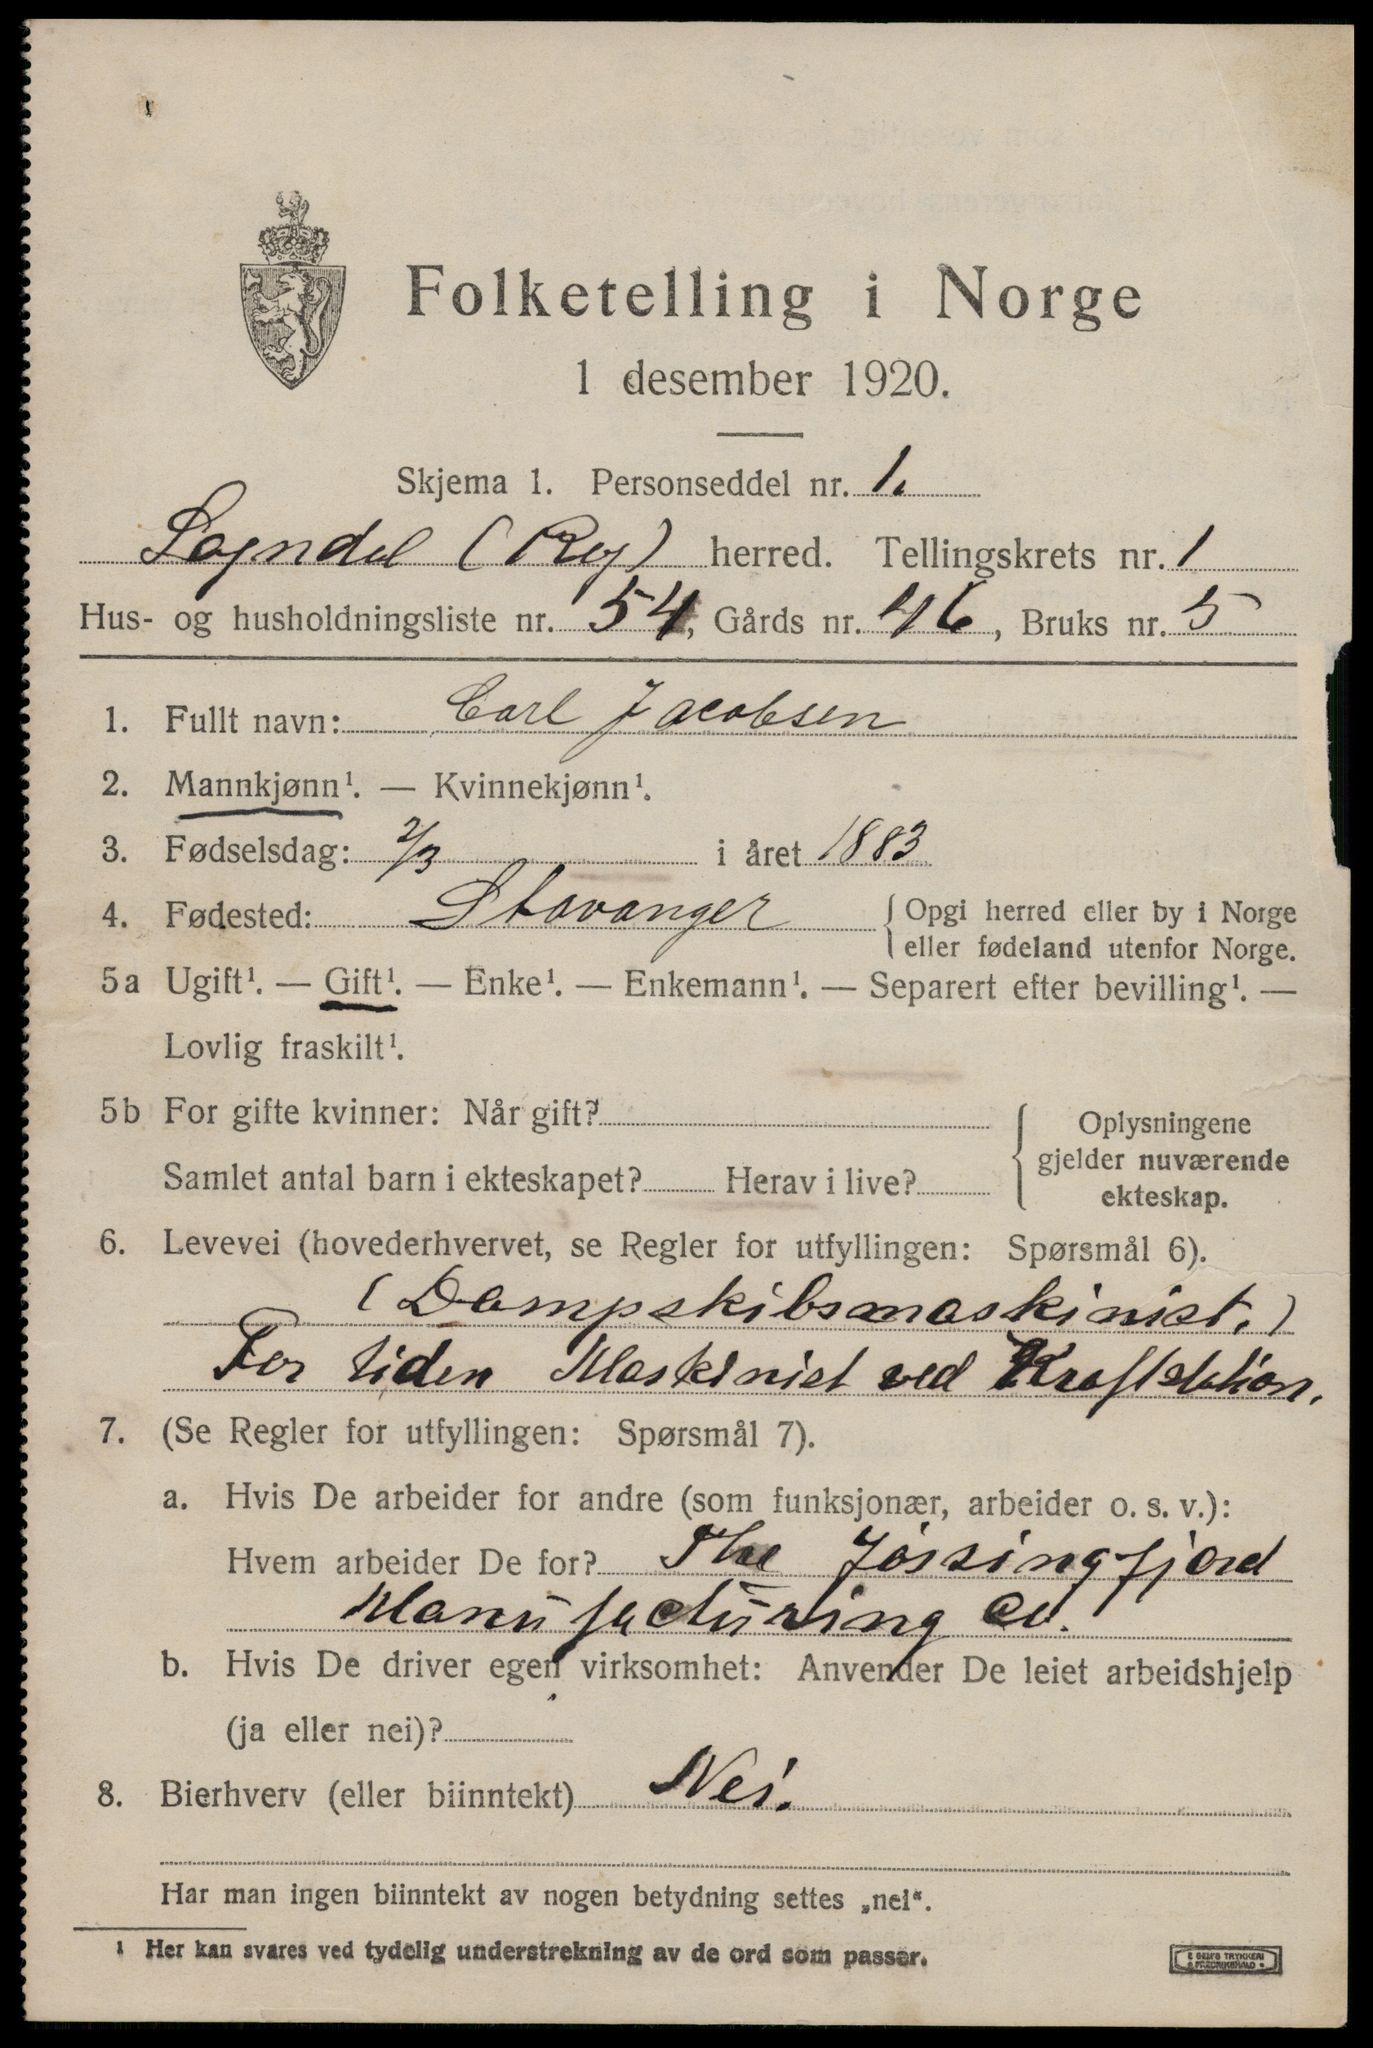 Folketelling i Norge
1 desember 1920.
Skjema 1. Personseddel nr. 1.
Sogndal (Rog) herred. Tellingskrets nr. 1
Hus- og husholdningsliste nr. 54, Gårds nr. 46, Bruks nr. 5
1. Fullt navn: Carl Jacobsen
2. Mannkjønn¹. — Kvinnekjønn¹.
3. Fødselsdag: 2/3 i året 1883
4. Fødested: Stavanger { Opgi herred eller by i Norge
eller fødeland utenfor Norge.
5a Ugift¹. — Gift¹. — Enke¹. — Enkemann¹. — Separert efter bevilling¹. —
Lovlig fraskilt¹.
5b For gifte kvinner: Når gift? Oplysningene
gjelder nuværende
Samlet antal barn i ekteskapet? Herav i live? ekteskap.
6. Levevei (hovederhvervet, se Regler for utfyllingen: Spørsmål 6).
(Dampskibsmaskinist.)
For tiden Maskinist ved Kraftstation.
7. (Se Regler for utfyllingen: Spørsmål 7).
a. Hvis De arbeider for andre (som funksjonær, arbeider o. s. v.):
Hvem arbeider De for? The Jössingfjord
Manufacturing Co.
b. Hvis De driver egen virksomhet: Anvender De leiet arbeidshjelp
(ja eller nei)?
8. Bierhverv (eller biinntekt) Nei.
Har man ingen biinntekt av nogen betydning settes „nei“.
1 Her kan svares ved tydelig understrekning av de ord som passer.
E SEM'S TRYKKERI
FREDRIKSHALD